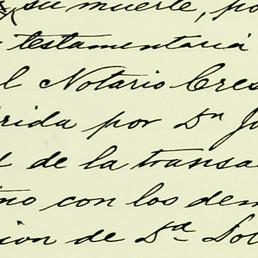 su muerte, po
testamentaria
l Notario Cres
rida por Dn Jo
de la transa
no con los dem
ion de Da Dol